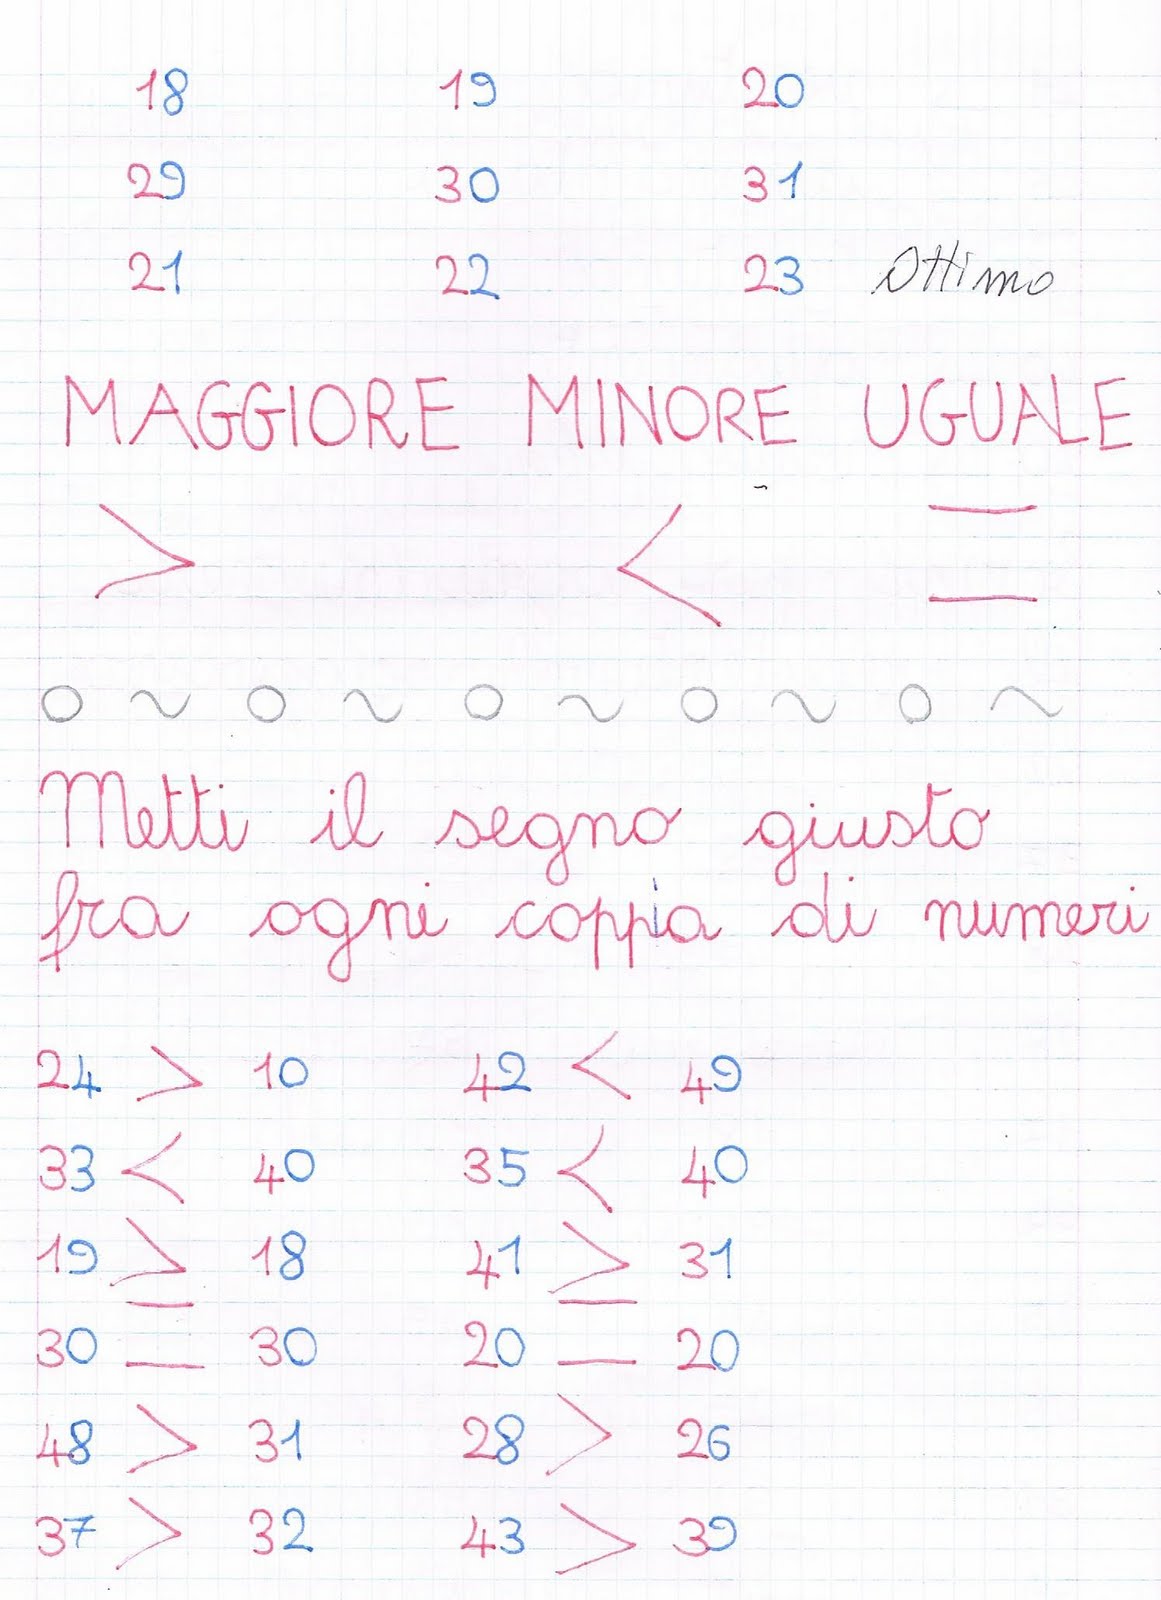 18 19 20
29 30 31
21 22 23 Ottimo
MAGGIORE MINORE UGUALE
> < =
Metti il segno giusto
fra ogni coppia di numeri
24 > 10 42 < 49
33 < 40 35 < 40
19 > 18 41 > 31
30 = 30 20 = 20
48 > 31 28 > 26
37 > 32 43 > 39